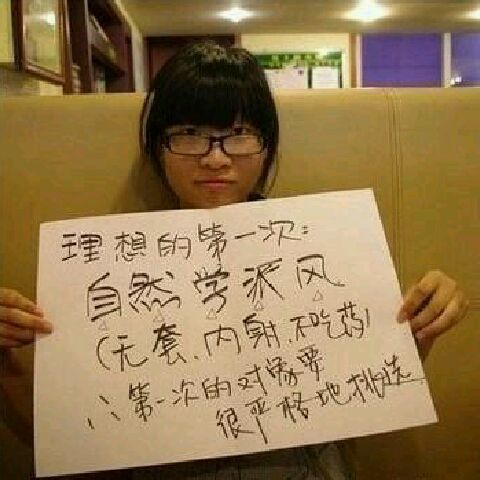 理想的第一次:
自然学派风
(无套、内射、不吃药)
∴第一次的对象要
很严格地挑选